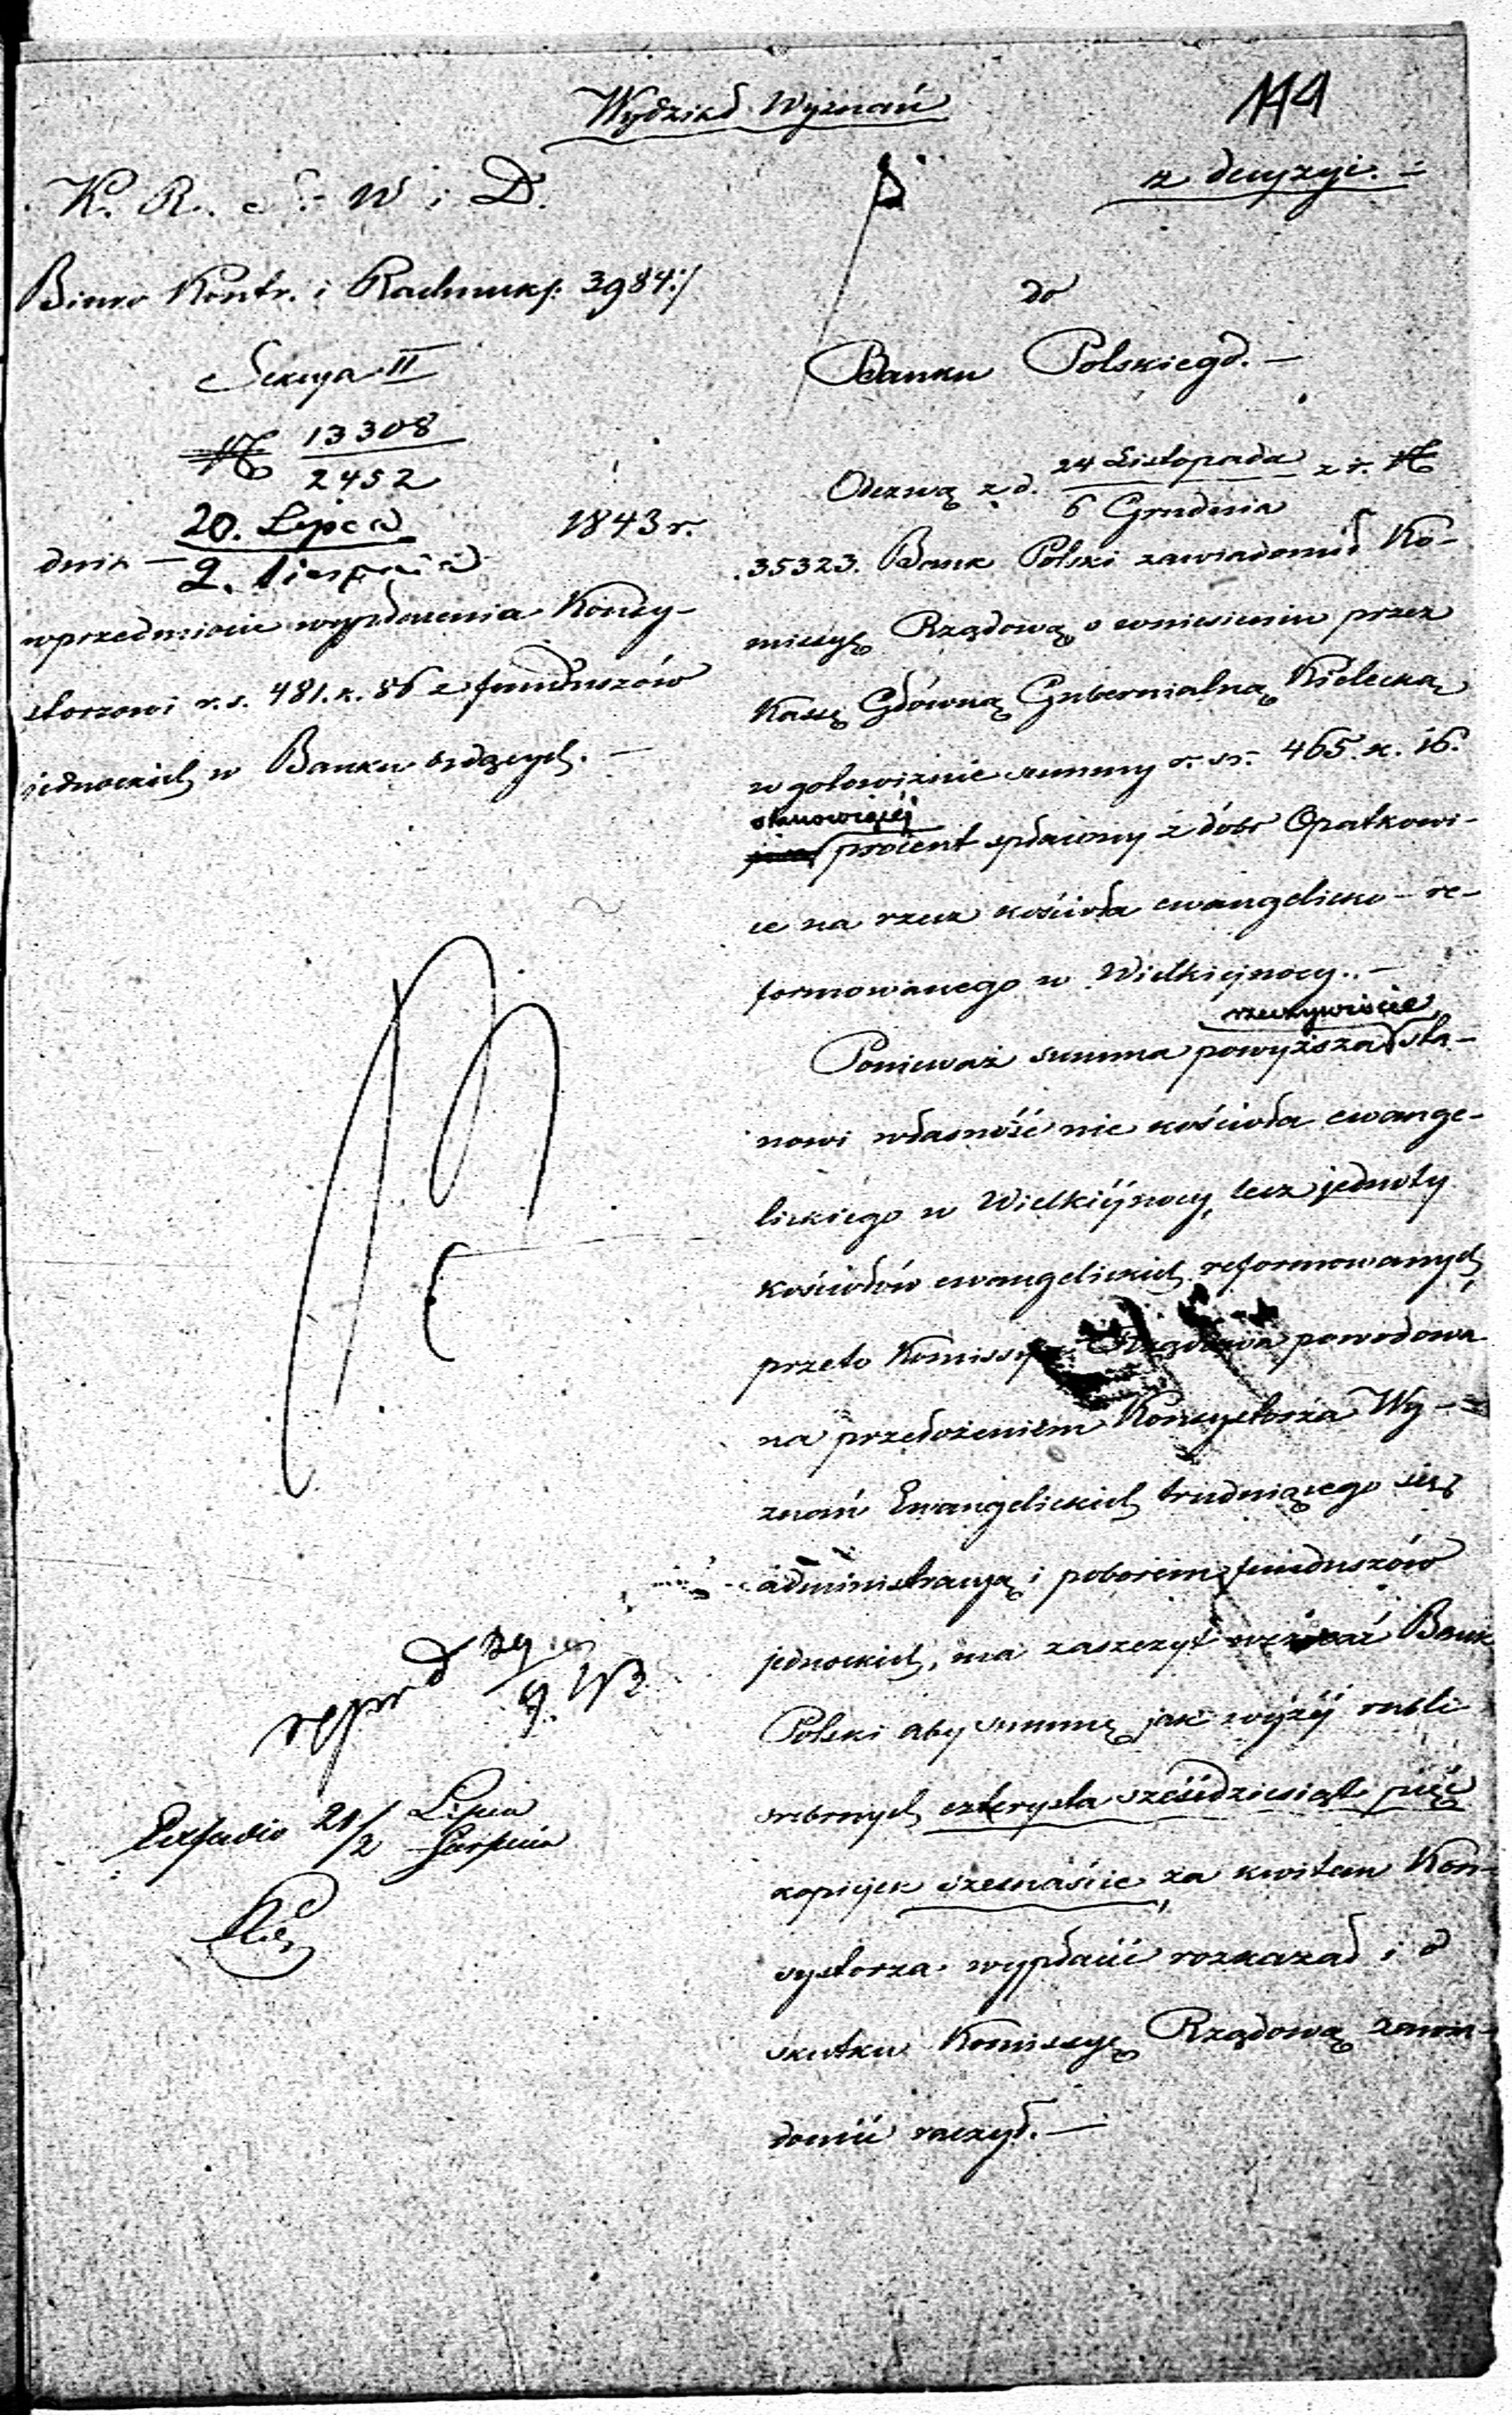 Wydział Wyznań
144
z decyzyi. =
K. R. S. W i D.
Biuro Kontr. i Rachunk: 3984:/
Sekcya II
№ 13308
2452
dnia 20. Lipca 1843 r.
2. Sierpnia
w przedmiocie wypłacenia Konsy-
storzowi r. s. 481. k. 86 z funduszów
jednockich w Banku będących. —
Expedio 21/2 Lipca
Sierpnia
do
Banku Polskiego. —
Odezwą z d. 24 Listopada z. r. №
6 Grudnia
35323. Bank Polski zawiadomił Ko-
missyę Rządową o wniesieniu przez
Kassę Główną Gubernialną Kielecką
w gotowiznie summy r. sr. 465. k. 16.
stanowiącéj
procent spłacony z dóbr Opatkowi-
ce na rzecz kościoła ewangelicko-re-
formowanego w Wielkiéjnocy. —
rzeczywiście
Ponieważ summa powyższa sta-
nowi własność nie kościoła ewange-
lickiego w Wielkiéjnocy, lecz jednoty
kościołów ewangelickich reformowanych,
przeto Kommissya Rządowa powodowa-
na przedłożeniem Konsystorza Wy-
znań Ewangelickich trudniącego się
administracyą i poborem funduszów
jednockich, ma zaszczyt wezwać Bank
Polski aby summę jak wyżéj rubli
srebrnych czterysta sześćdziesiąt pięć
kopiejek szesnaście za kwitem Kon-
systorza wypłacić rozkazał i o
skutku Komissyę Rządową zawia-
domić raczył. —